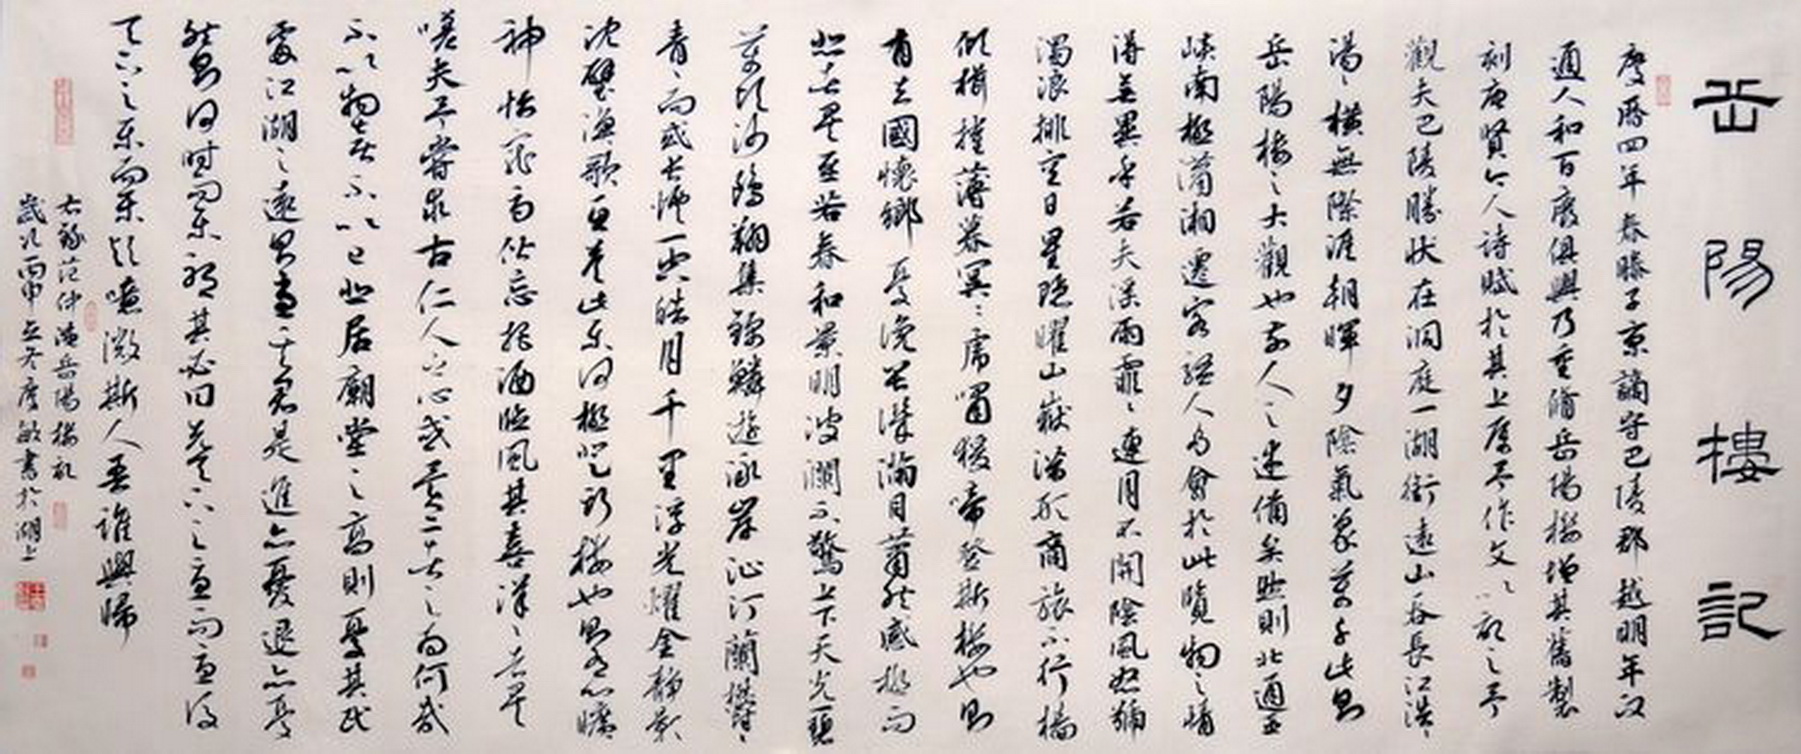 岳陽樓記
慶曆四年春滕子京謫守巴陵郡越明年政
通人和百廢俱興乃重脩岳陽樓增其舊製
刻唐賢今人詩賦於其上屬予作文以記之予
觀夫巴陵勝狀在洞庭一湖銜遠山吞長江浩〻
湯〻橫無際涯朝暉夕陰氣象萬千此則
岳陽樓之大觀也前人之述備矣然則北通巫
峽南極瀟湘遷客騷人多會於此覽物之情
得無異乎若夫淫雨霏〻連月不開陰風怒號
濁浪排空日星隱曜山嶽潛形商旅不行檣
傾楫摧薄暮冥〻虎嘯猿啼登斯樓也則
有去國懷鄉憂讒畏譏滿目蕭然感極而
悲者矣至若春和景明波瀾不驚上下天光一碧
萬頃沙鷗翔集錦鱗遊泳岸芷汀蘭鬱〻
青〻而或長煙一空皓月千里浮光耀金靜影
沈璧漁歌互答此樂何極登斯樓也則有心曠
神怡寵辱偕忘把酒臨風其喜洋〻者矣
嗟夫予嘗求古仁人之心或異二者之為何哉
不以物喜不以己悲居廟堂之高則憂其民
處江湖之遠則憂其君是進亦憂退亦憂
然則何時而樂耶其必曰先天下之憂而憂後
天下之樂而樂歟噫微斯人吾誰與歸
右錄范仲淹岳陽樓記
歲次丙申立冬慶敏書於湖上